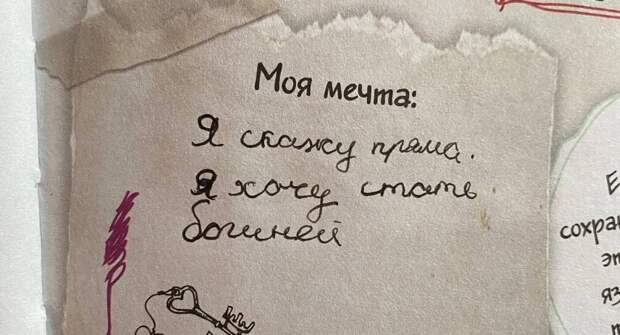 Моя мечта:
Я скажу пряма.
Я хочу стать
богиней
Е
сохран
эт
яз